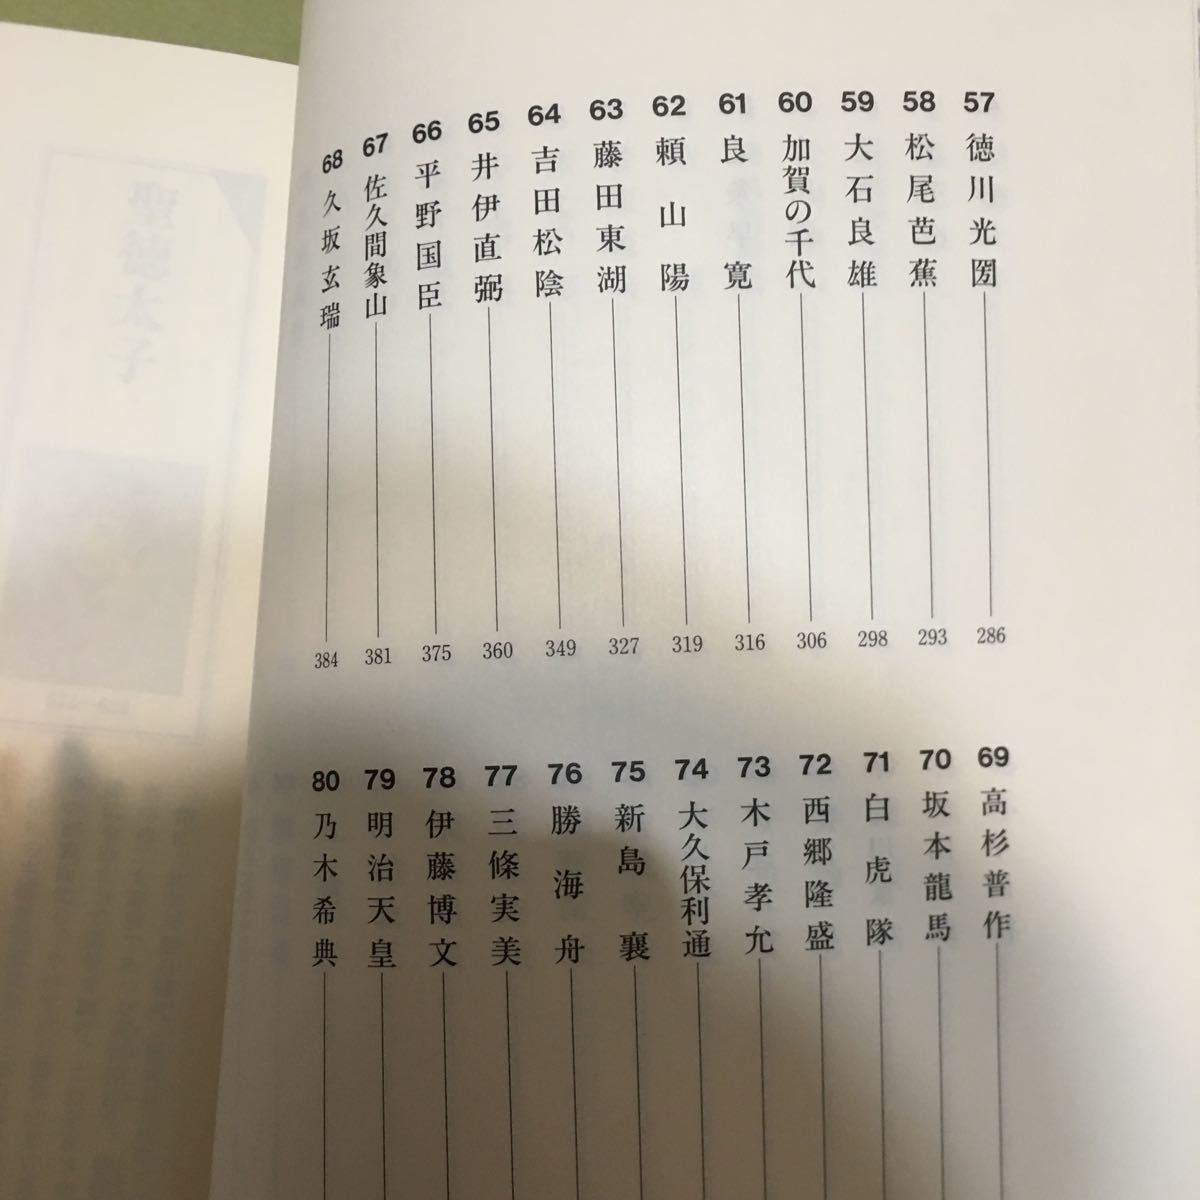 57 徳川光圀 286
58 松尾芭蕉 293
59 大石良雄 298
60 加賀の千代 306
61 良寛 316
62 頼山陽 319
63 藤田東湖 327
64 吉田松陰 349
65 井伊直弼 360
66 平野国臣 375
67 佐久間象山 381
68 久坂玄瑞 384
69 高杉普作
70 坂本龍馬
71 白虎隊
72 西郷隆盛
73 木戸孝允
74 大久保利通
75 新島襄
76 勝海舟
77 三條実美
78 伊藤博文
79 明治天皇
80 乃木希典
聖徳太子